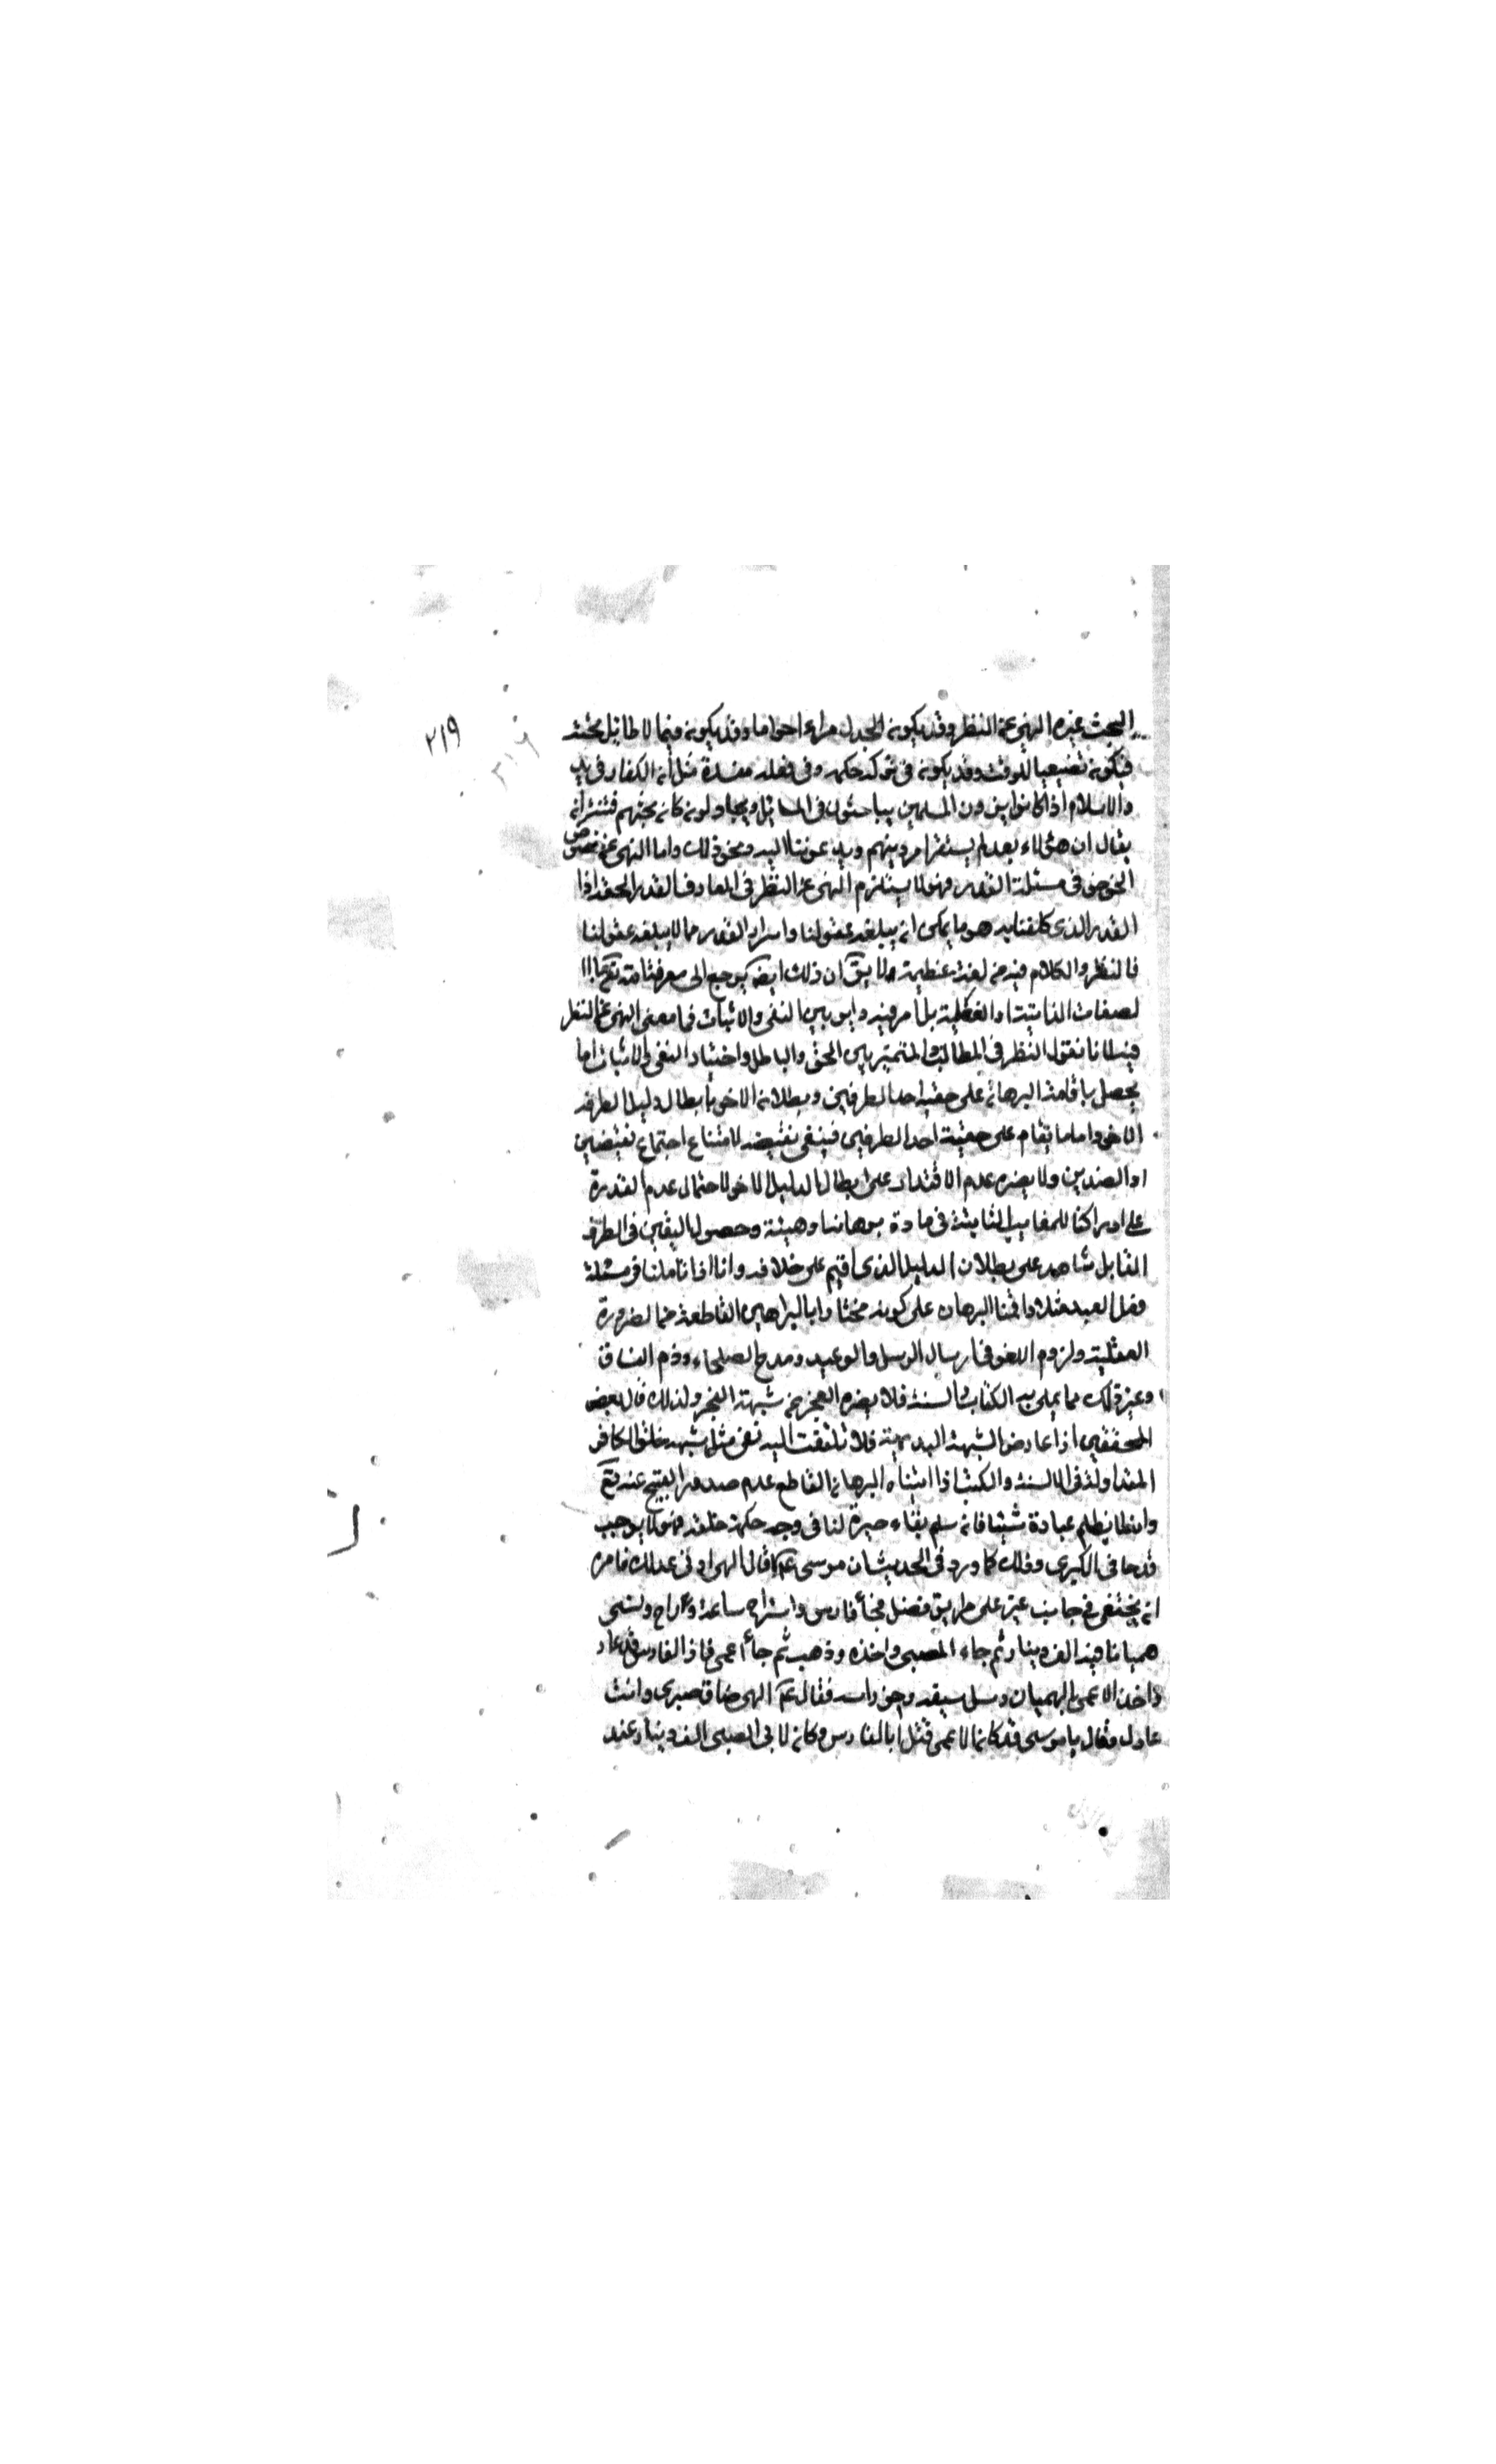 ٢١٩
البحث غيره النهى عن النظر وقد يكون الجدل مراء احراما وقد يكون فيما لا طائل تحته
فيكون تضييعا للوقت وقد يكون فى تركه حكمة وفى فعله مفسدة مثل ان الكفار فى
والاسلام اذا كانوا يرون المسلمين يباحثون فى المسائل ويجادلون كان يجبهم فتنتشر انه
يقال ان هؤلاء بعد لم يستقر امر دينهم ويدعوننا اليه ونحو ذلك واما النهى عن خصوص
الخوض فى مسئلة القدر فهو لا يستلزم النهى عن النظر فى المعارف القدر الحقه اذا
القدر الذى كلفنا به هو ما يمكن ان يبلغه عقولنا واسرار القدر مما لا يبلغه عقولنا
فالنظر والكلام فيه عظيمة ولا يق ان ذلك ايضه يرجع الى معرفتنا
لصفات الذاتية او الفعلية بل امر فيه داير بين النفى والاثبات فما معنى النهى عن النظر
فيه لانا نقول النظر فى المطالب والتمييز بين الحق والباطل واختيار النفى والاثبات اما
يحصل باقامة البرهان على حقية احد الطرفين وبطلان الاخر بابطال دليل الطرف
الاخر واما ما يقام على حقية احد الطرفين فينفى نقيضه لامتناع اجتماع نقيضين
او الضدين ولا يضره عدم الاقتدار على ابطال الدليل الاخر لاحتمال عدم القدرة
على ادراكنا للمعايب الثابتة فى مادة برهاننا وهيئة وحصول اليقين فى الطرف
المقابل شاهد على بطلان الدليل الذى اقيم على خلافه وانا اذا تاملنا فى مسئلة
فعل العبد مثلا واقمنا البرهان على كونه مختارا بالبراهين القاطعة من الضرورة
العقلية ولزوم اللغو فى ارسال الرسل والوعيد ومدح الصلحاء وذم الفساق
وغير ذلك مما يملى به الكتاب والسنة فلا يضره العجز عن شبهة الفخر ولذلك قال بعض
المحققين اذا عارض الشبهة البديهية فلا تلتفت اليه نفى مثل شبهة خلق الكافر
المتداولة فى الالسنة والكتب اذا اثبتناه البرهان القاطع عدم صدور القبيح عنه تع
وانه لا يظلم عباده شيئا فان سلم بقاء حيرة لنا فى وجه حكمة خلقه فهو لا يوجب
قدحا فى الكبرى وذلك كما ورد فى الحديث ان موسى عم قال الهى ارنى عدلك فامره
ان يختفى فى جانب عين على طريق فجأ فارس واستراح ساعة وراح ونسى
هميانا فيه الف دينار ثم جاء الصبى واخذه وذهب ثم جأ اعمى فاذا الفارس قد عاد
واخذ الاعمى بالهميان وسل سيفه وجز راسه فقال عم الهى ضاق صبرى وانت
عادل فقال يا موسى قد كان الاعمى قتل ابا الفارس وكان لابى الصبى الف دينار عند